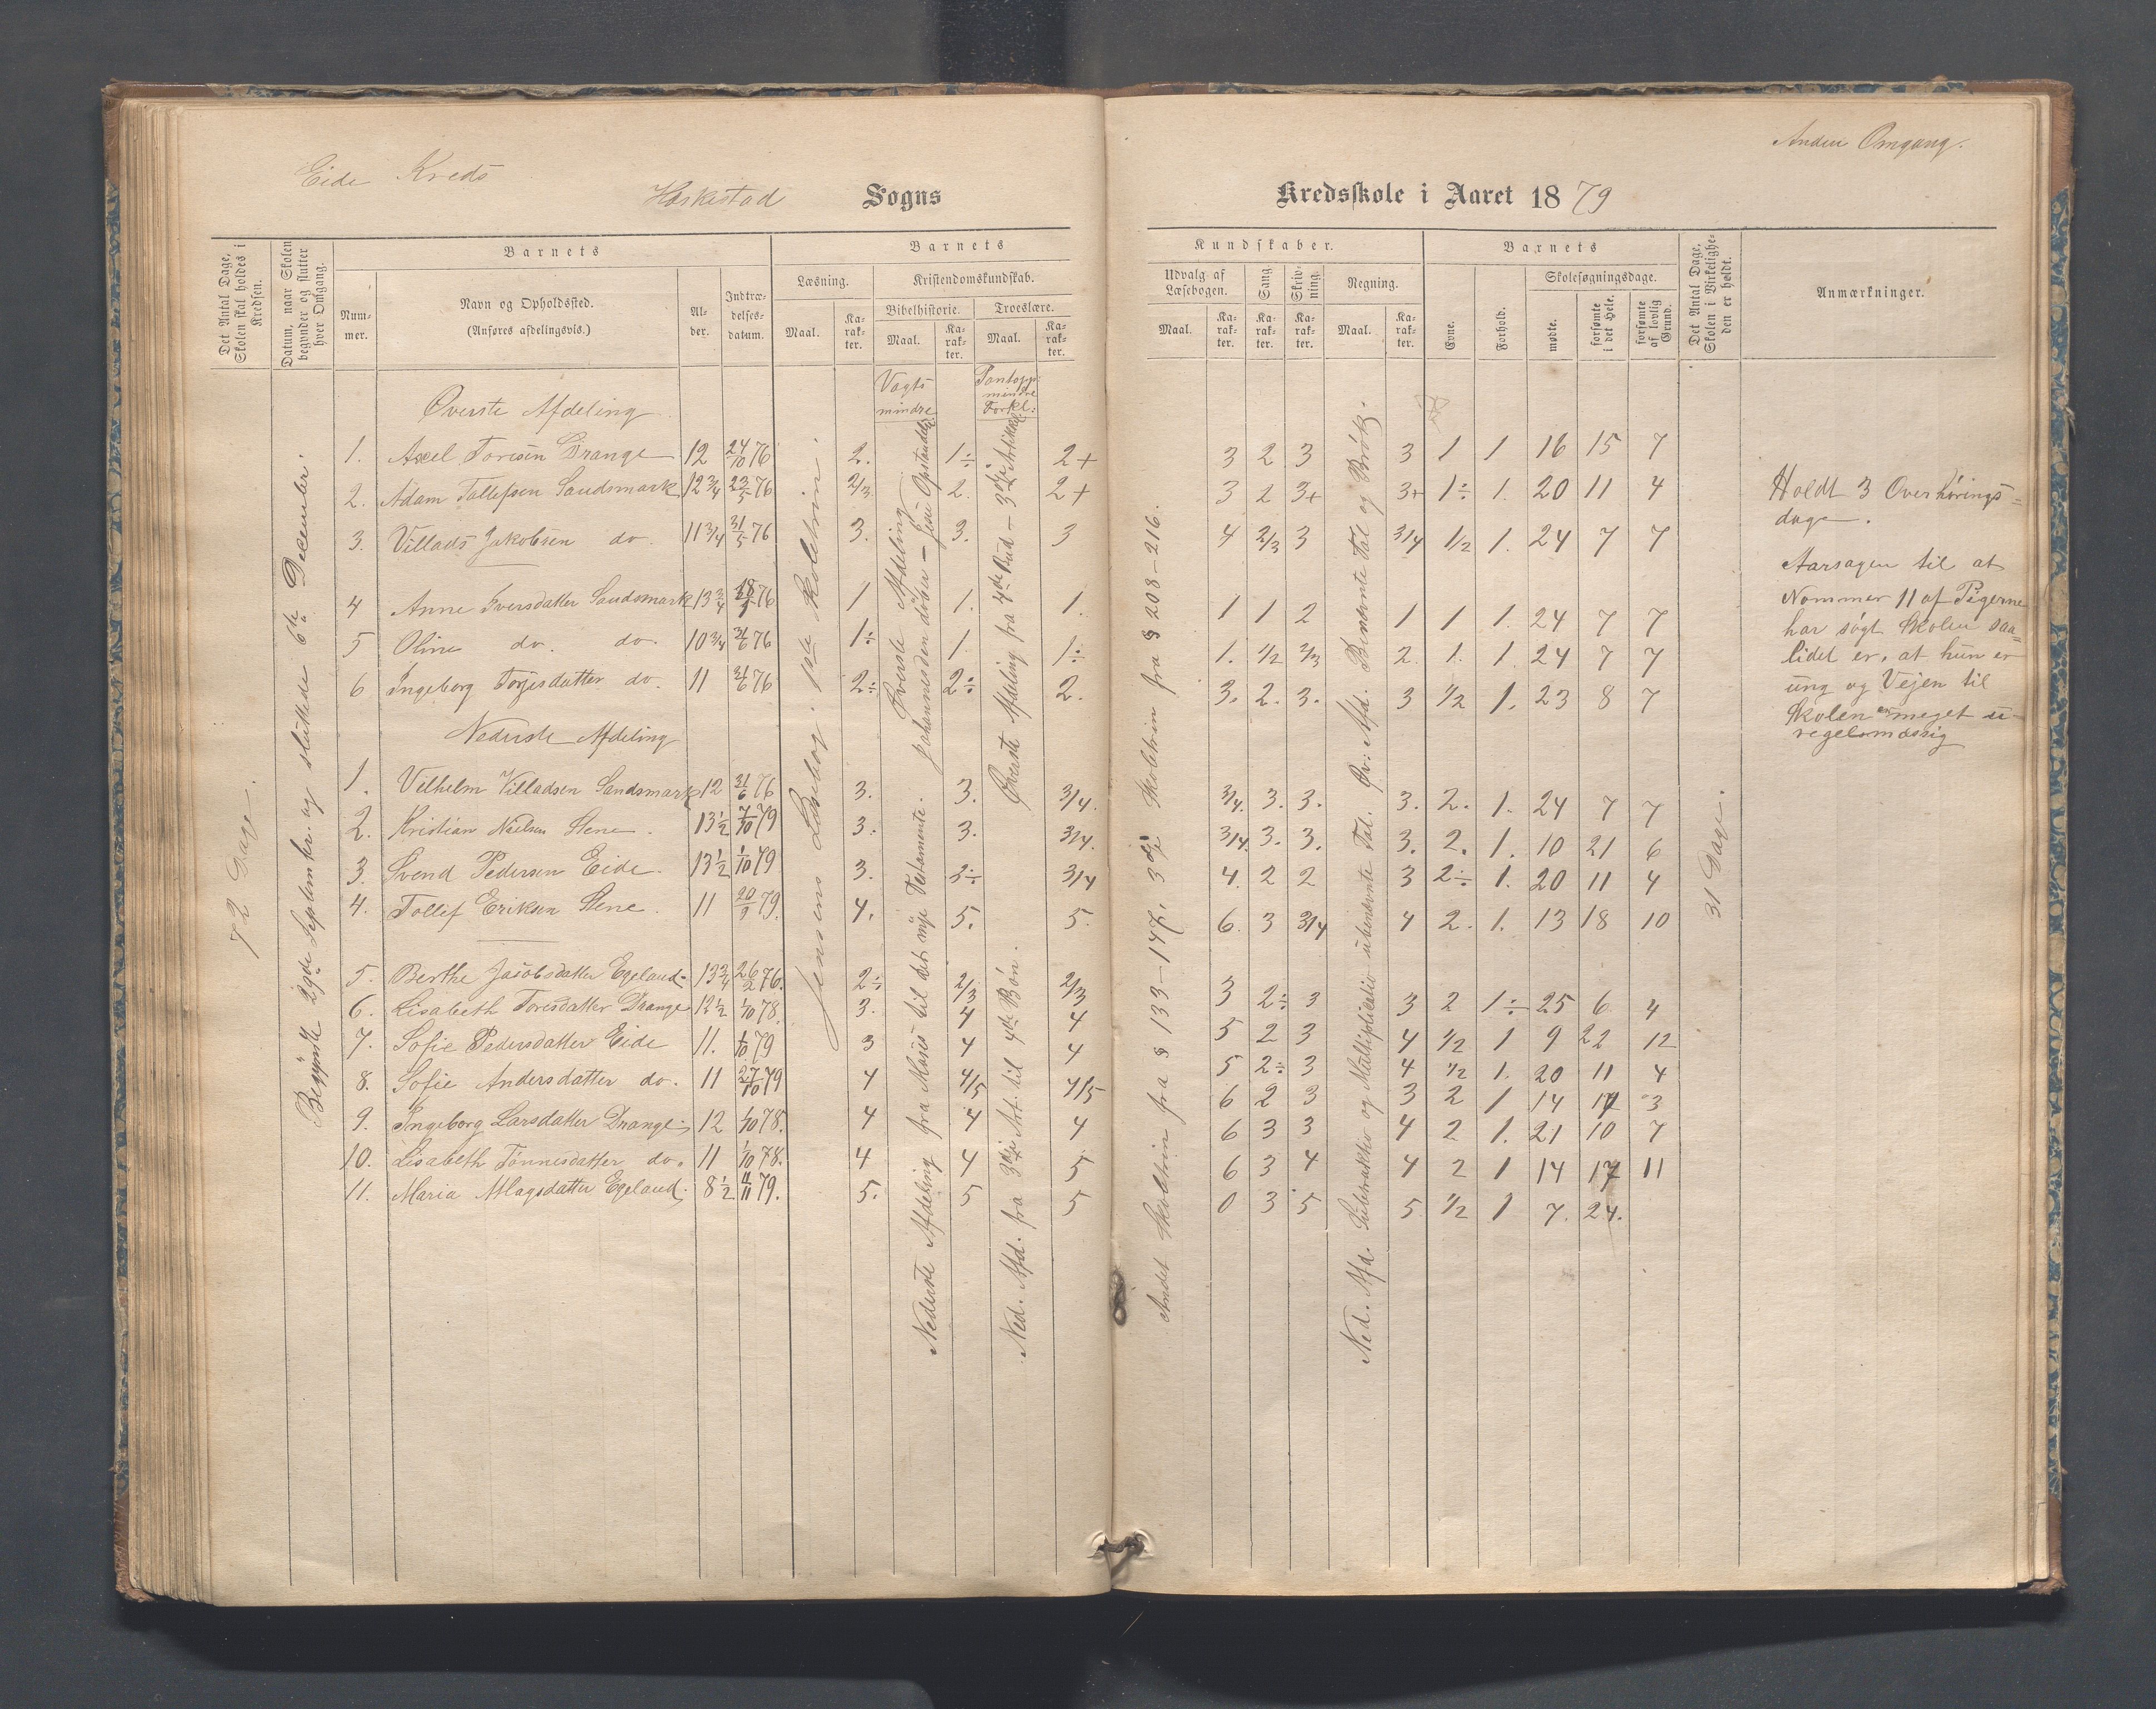 Anden Omgang.
Eide Kreds
Heskestad Sogns
Kredsskole i Aaret 1879
Det Antal Dage, Skolen skal holdes i Kredsen.
Datum, naar Skolen begynder og slutter hver Omgang.
Barnets
Nummer.
Navn og Opholdssted.
(Anføres afdelingsvis.)
Alder.
Indtrædelsesdatum.
Barnets
Læsning.
Maal.
Karakter.
Kristendomskundskab.
Bibelhistorie.
Maal.
Karakter.
Troeslære.
Maal.
Karakter.
Kundskaber.
Udvalg af Læsebogen.
Maal.
Karakter.
Sang
Karakter.
Skrivning.
Karakter.
Regning.
Maal.
Karakter.
Barnets
Evne.
Forhold.
Skolesøgningsdage.
mødte.
forsømte i det Hele.
forsømte af lovlig Grund.
Det Antal Dage, Skolen i Virkeligheden er holdt.
Anmærkninger.
72 Dage.
Begyndte 29de September. og sluttede 6te December.
Jensens Læsebog. 1ste Skoletrin.
Vogts mindre
Øverste Afdeling
Johannes den døber — Jesu Opstandelse.
Nederste Afdeling fra Moses til det nye Testamente.
Pontopp: mindre Forkl:
Øverste Afdeling fra 4de Bud — 3die Artikel
Ned. Afd. fra 3die Art. til 4de Bøn.
Andet Skoletrin fra § 133–147, 3die Skoletrin fra § 208–216.
Ned. Afd. Subtraktio og Multiplicatio ubenævnte Tal. Øv: Afd. Benævnte Tal og Brøk.
31 Dage.
Øverste Afdeling
1. Axel Toresen Drange 12 24/10 76 2. 1÷ 2+ 3 2 3 3 1 1 16 15 7
2. Adam Tollefsen Sandsmark 12 3/4 23/5 76 2/3 2. 2+ 3 2 3+ 3+ 1÷ 1. 20 11 4
3. Villads Jakobsen do. 11 3/4 31/5 76 3. 3. 3 4 2/3 3 3/4 1/2 1. 24 7 7
4 Anne Iversdatter Sandsmark 13 3/4 76 1 1. 1. 1 1 2 1 1 1. 24 7 7
5 Oline do. do. 10 3/4 31/6 76 1÷ 1. 1÷ 1. 1/2 2/3 2. 1. 1. 24 7 7
6 Ingeborg Torjesdatter do. 11 31/6 76 2÷ 2÷ 2. 3. 2. 3. 3 1/2 1. 23 8 7
Nederste Afdeling
1. Vilhelm Villadsen Sandsmark 12 31/6 76 3. 3. 3/4. 3/4. 3. 3. 3. 2. 1. 24 7 7
2. Kristian Nielsen Stene. 13 1/2 7/10 79 3. 3. 3/4. 3/4. 3. 3. 3. 2. 1. 10 21 6
3. Svend Pedersen Eide. 13 1/2 1/10 79 3. 3÷ 3/4 4. 2 2 3 2÷ 1. 20 11 4
4. Tollef Eriksen Stene. 11 20/9 79. 4. 5. 5. 6. 3 3/4 4 2. 1. 13 18 10
5. Berthe Jacobsdatter Egeland. 13 3/4 26/2 76. 2÷ 2/3 2/3 3 2÷ 3 3 2 1÷ 25 6 4
6. Lisabeth Toresdatter Drange 12 1/2 1/10 78. 3. 4 4 5 2 3 4 1/2 1 9 22 12
7. Sofie Pedersdatter Eide 11. 1/10 79 3 4 4 5 2÷ 3 4 1/2 1. 20 11 4
8. Sofie Andersdatter do. 11 27/10 79 4 4/5 4/5 6 2 3 3 2 1 14 17 3
9. Ingeborg Larsdatter Drange. 12 1/10 78. 4 4 4 6 3 3 4 2 1. 21 10 7
10. Lisabeth Tønnesdatter do. 11 1/10 78. 4 4 5 6 3 4 4 2 1 14 17 11
11. Maria Aslagsdatter Egeland. 8 1/2 11/11 79. 5. 5 5 0 3 5 5 1/2 1 7. 24.
Holdt 3 Overhørings-
dage.
Aarsagen til at
Nommer 11 af Pigerne
har søgt Skolen saa-
lidet er, at hun er
ung og Vejen til
Skolen er meget u-
regelmæssig